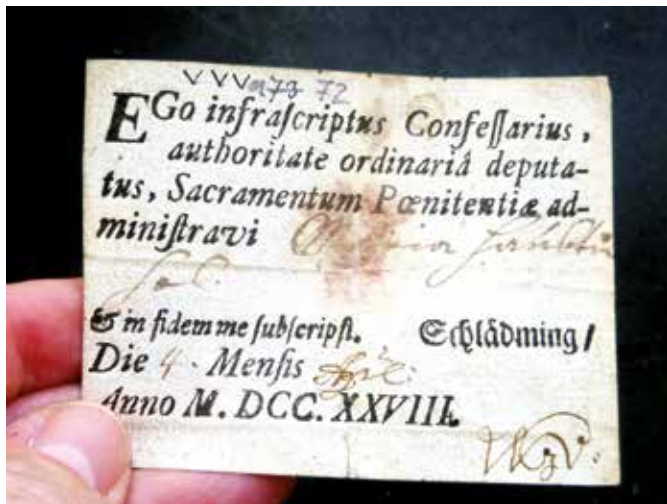 VVV 73 72
EGo infraſcriptus Confeſſarius,
authoritate ordinariâ deputa-
tus, Sacramentum Pœnitentiæ ad-
miniſtravi
& in fidem me ſubſcripſi. Schlädming/
Die 4. Menſis
Anno M. DCC. XXVIII.